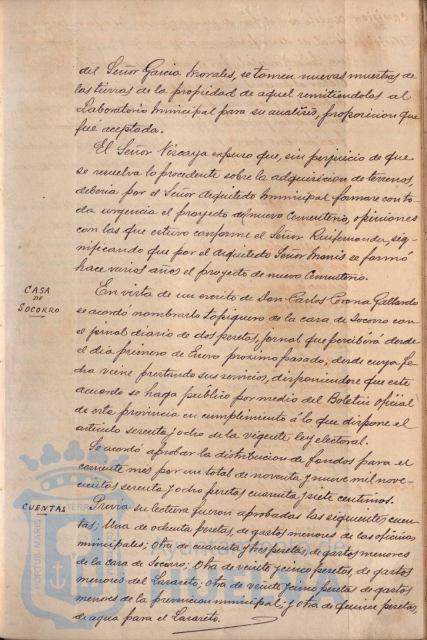 del Señor Garcia Morales, se tomen nuevas muestras de
las tierras de la propiedad de aquel remitiéndolas al
Laboratorio Municipal para su analisis, proposicion que
fué aceptada.
El Señor Vizcaya expuso que, sin perjuicio de que
se resuelva lo procedente sobre la adquisicion de terrenos,
deberia por el Señor Arquitecto Municipal formarse con to-
da urgencia el proyecto de nuevo Cementerio, opiniones
con las que estuvo conforme el Señor Ruifernandez, sig-
nificando que por el arquitecto Señor Monis se formó
hace varios años el proyecto de nuevo Cementerio.
CASA
DE
SOCORRO
En vista de un escrito de Don Carlos Corona Gallardo
se acordó nombrarlo Topiquero de la casa de Socorro con
el jornal diario de dos pesetas, jornal que percibirá desde
el dia primero de Enero proximo pasado, desde cuya fe-
cha viene prestando sus servicios, disponiendose que este
acuerdo se haga público por medio del Boletin oficial
de esta provincia en cumplimiento á lo que dispone el
articulo sesenta y ocho de la vigente ley electoral.
Se acordó aprobar la distribucion de fondos para el
corriente mes por un total de noventa y nueve mil nove-
cientas sesenta y ocho pesetas cuarenta y siete centimos.
CUENTAS
Previa su lectura fueron aprobadas las siguientes cuen-
tas; Una de ochenta pesetas, de gastos menores de las oficinas
municipales; otra de cuarenta y tres pesetas, de gastos menores
de la casa de Socorro; otra de veinte y cinco pesetas, de gastos
menores del Lazareto; otra de veinte y cinco pesetas de gastos
menores de la prevencion municipal; y otra de quince pesetas,
de agua para el Lazareto.
PORTUS MARIS